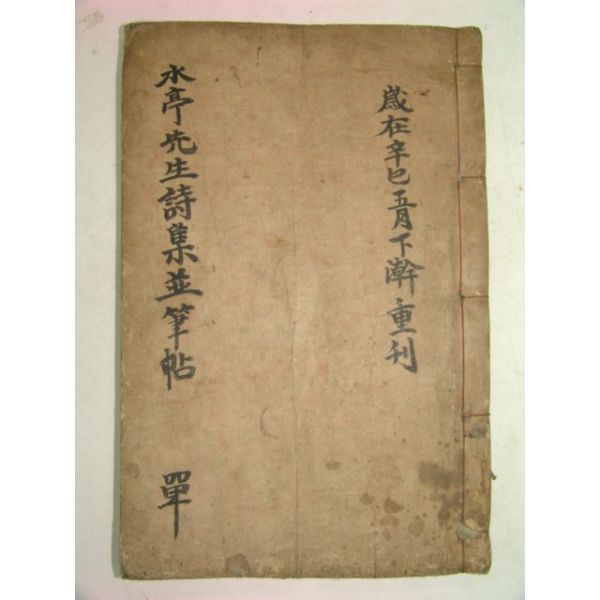 嵗在辛巳五月下澣重刊
水亭先生詩集並筆帖
單